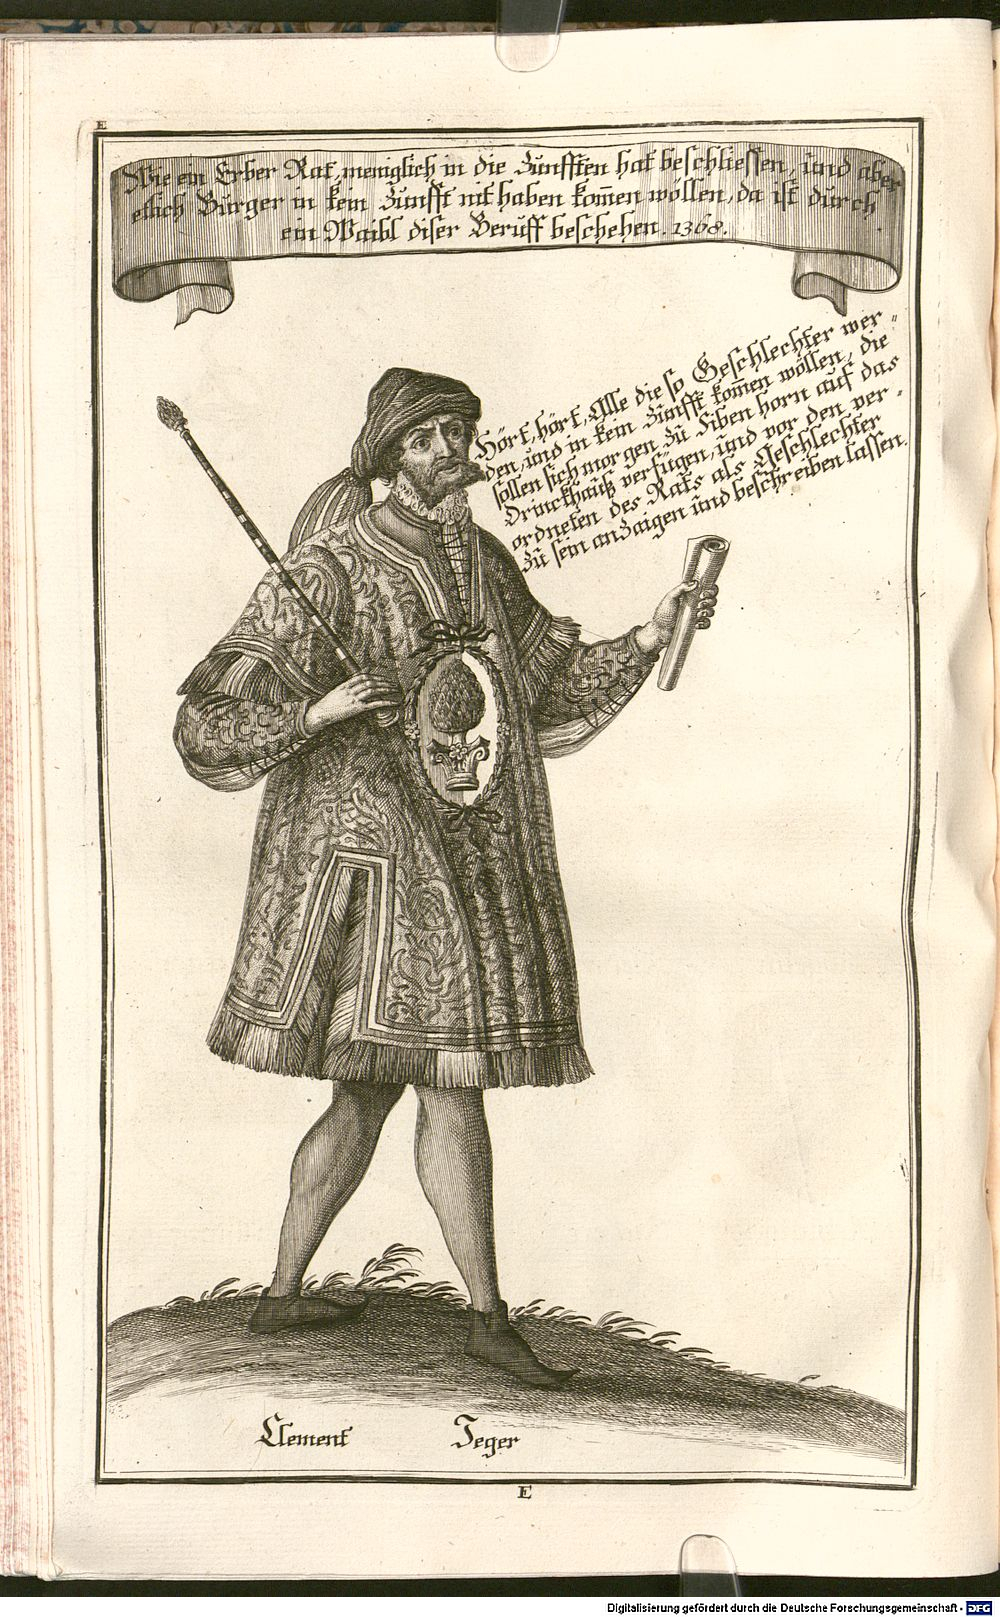 E
Wie ein Erber Rat, meniglich in die Zunfften hat beschliessen, und aber
etlich Burger in kein Zunfft nit haben kom̄en wöllen, da ist durch
ein Waibl diser Beruff beschehen. 1368.
Hört, hört, Alle die so Geschlechter wer=
den, und in kein Zunfft kom̄en wöllen, die
sollen sich morgen zu Siben horn auf das
Drinckhauß verfügen, und vor den ver=
ordneten des Rats als Geschlechter
zu sein anzaigen und beschreiben lassen.
Clement Jeger
E
Digitalisierung gefördert durch die Deutsche Forschungsgemeinschaft - DFG